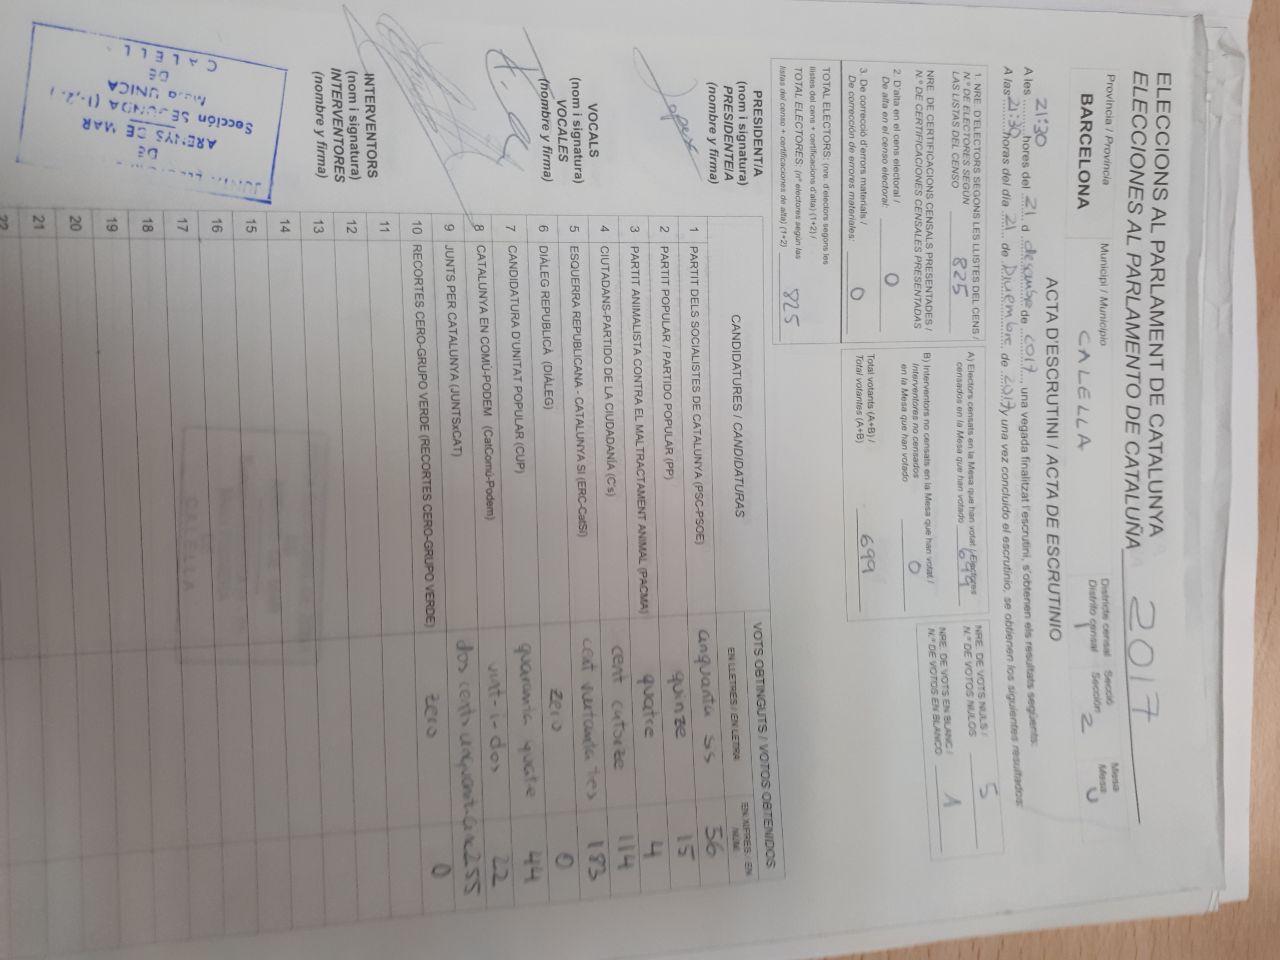 ELECCIONS AL PARLAMENT DE CATALUNYA
ELECCIONES AL PARLAMENTO DE CATALUÑA 2017
Província / Provincia
BARCELONA
Municipi / Municipio
CALELLA
Districte censal
Distrito censal
Secció
Sección 2
Mesa
Mesa U
ACTA D'ESCRUTINI / ACTA DE ESCRUTINIO
A les 21:30 hores del 21 d desembre de 2017, una vegada finalitzat l'escrutini, s'obtenen els resultats següents:
A las 21:30 horas del día 21 de Diciembre de 2017 y una vez concluido el escrutinio, se obtienen los siguientes resultados:
1. NRE D'ELECTORS SEGONS LES LLISTES DEL CENS /
N.º DE ELECTORES SEGÚN
LAS LISTAS DEL CENSO 825
NRE. DE CERTIFICACIONS CENSALS PRESENTADES /
N.º DE CERTIFICACIONES CENSALES PRESENTADAS
2. D'alta en el cens electoral /
De alta en el censo electoral: 0
3. De correcció d'errors materials /
De corrección de errores materiales: 0
TOTAL ELECTORS: (nre. d'electors segons les
llistes del cens + certificacions d'alta) (1+2) /
TOTAL ELECTORES: (nº electores según las
listas del censo + certificaciones de alta) (1+2) 825
A) Electors censats en la Mesa que han votat / Electores
censados en la Mesa que han votado 699
B) Interventors no censats en la Mesa que han votat /
Interventores no censados
en la Mesa que han votado 0
Total votants (A+B) /
Total votantes (A+B) 699
NRE. DE VOTS NULS /
N.º DE VOTOS NULOS 5
NRE. DE VOTS EN BLANC /
N.º DE VOTOS EN BLANCO 1
PRESIDENT/A
(nom i signatura)
PRESIDENTE/A
(nombre y firma)
VOCALS
(nom i signatura)
VOCALES
(nombre y firma)
INTERVENTORS
(nom i signatura)
INTERVENTORES
(nombre y firma)
CANDIDATURES / CANDIDATURAS
VOTS OBTINGUTS / VOTOS OBTENIDOS
EN LLETRES / EN LETRA
EN XIFRES / EN NÚM.
1 PARTIT DELS SOCIALISTES DE CATALUNYA (PSC-PSOE) cinquanta sis 56
2 PARTIT POPULAR / PARTIDO POPULAR (PP) quinze 15
3 PARTIT ANIMALISTA CONTRA EL MALTRACTAMENT ANIMAL (PACMA) quatre 4
4 CIUTADANS-PARTIDO DE LA CIUDADANÍA (C's) cent catorze 114
5 ESQUERRA REPUBLICANA - CATALUNYA SÍ (ERC-CatSí) cent vuitanta tres 183
6 DIÀLEG REPUBLICÀ (DIÀLEG) zero 0
7 CANDIDATURA D'UNITAT POPULAR (CUP) quaranta quatre 44
8 CATALUNYA EN COMÚ-PODEM (CatComú-Podem) vint-i-dos 22
9 JUNTS PER CATALUNYA (JUNTSxCAT) dos cents cinquanta cinc 255
10 RECORTES CERO-GRUPO VERDE (RECORTES CERO-GRUPO VERDE) zero 0
11
12
13
14
15
16
17
18
19
20
21
22
DE
ARENYS DE MAR
Sección SEGUNDA
Mesa UNICA
DE
CALELL